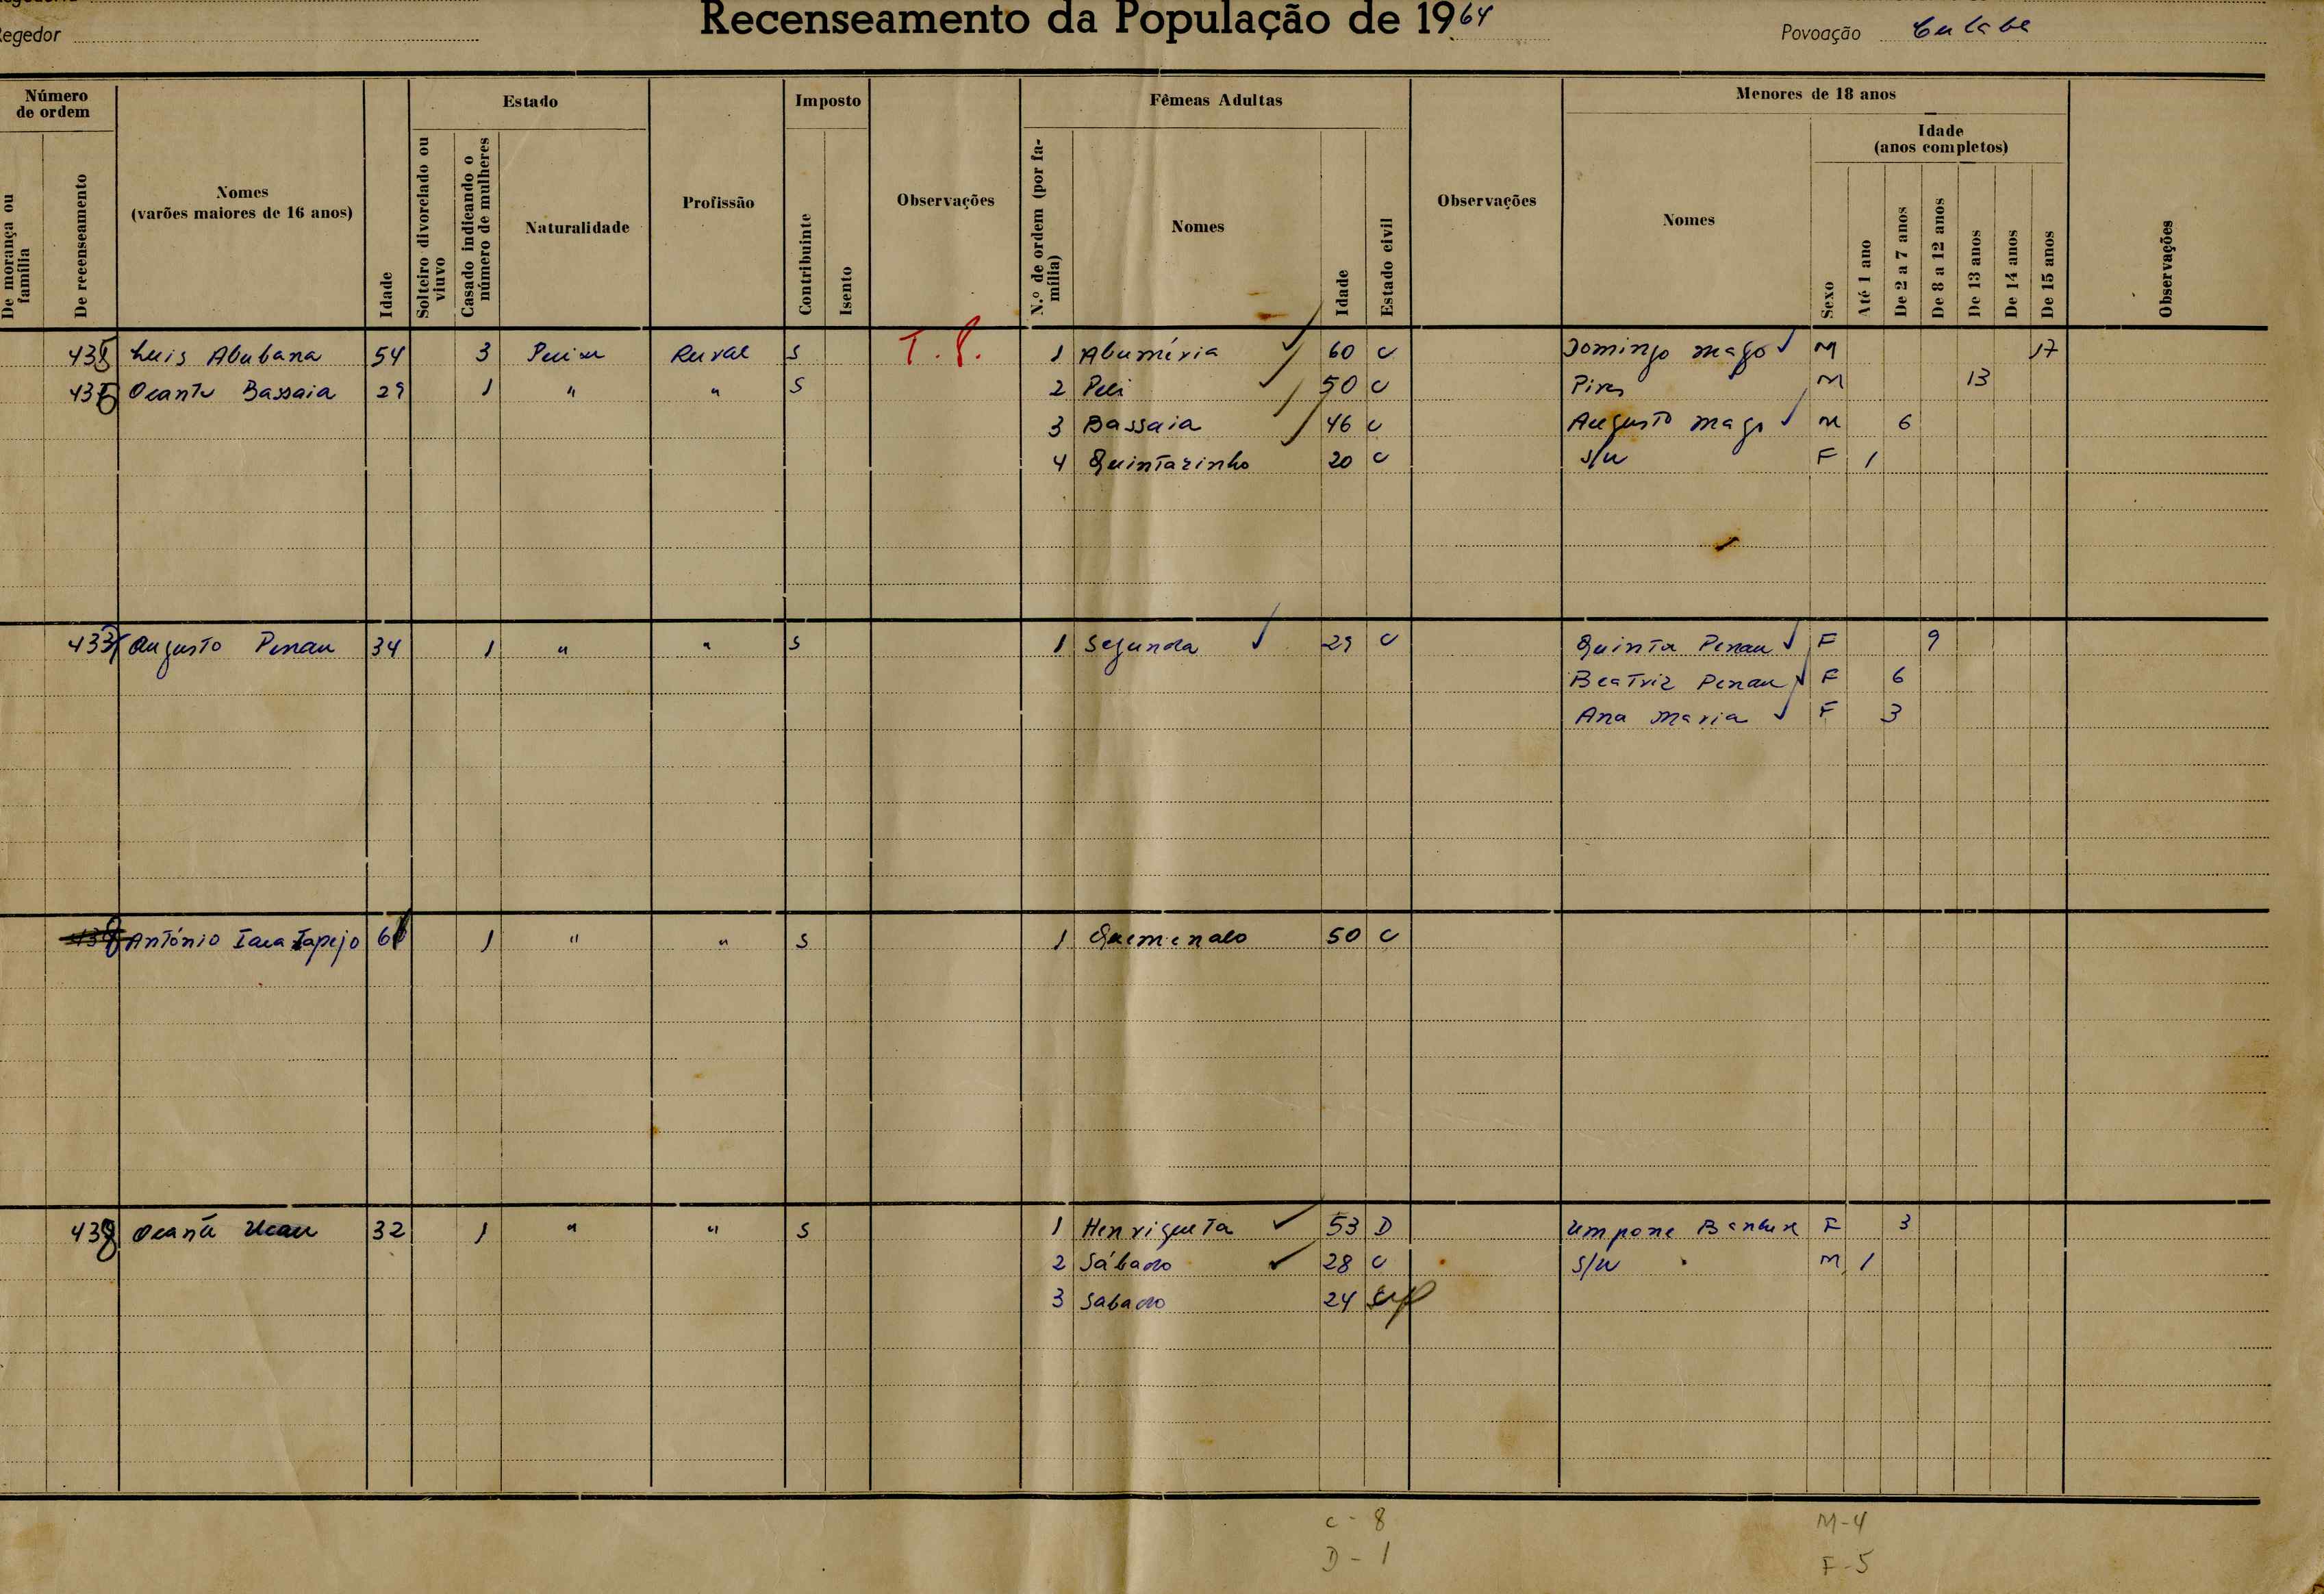 Recenseamento da População de 1964
Regedor
Povoação
Número de ordem
De morança ou família
De recenseamento
Nomes (varões maiores de 16 anos)
Idade
Estado
Solteiro divorciado ou viuvo
Casado indicando o número de mulheres
Naturalidade
Profissão
Imposto
Contribuinte
Isento
Observações
Fêmeas Adultas
N.º de ordem (por família)
Nomes
Idade
Estado civil
Observações
Menores de 18 anos
Nomes
Sexo
Idade (anos completos)
Até 1 ano
De 2 a 7 anos
De 8 a 12 anos
De 13 anos
De 14 anos
De 15 anos
Observações
Luis Abubana 54 3 Rural S 1 Abuméria 60 C Domingo Mago M 17
Bassaia 29 1 " " S 2 Peli 50 C Pires M 13
3 Bassaia 46 C Augusto Mago M 6
4 Quintazinho 20 C S/N F 1
Augusto Penau 34 1 " " S 1 Segunda 29 C Quinta Penau F 9
Beatriz Penau F 6
Ana Maria F 3
António 1 " " S 1 50 C
32 1 " " S 1 Henriqueta 53 D Umpone F 3
2 Sábado 28 C S/N M 1
3 Sabado 24
C - 8 M - 4
D - 1 F - 5